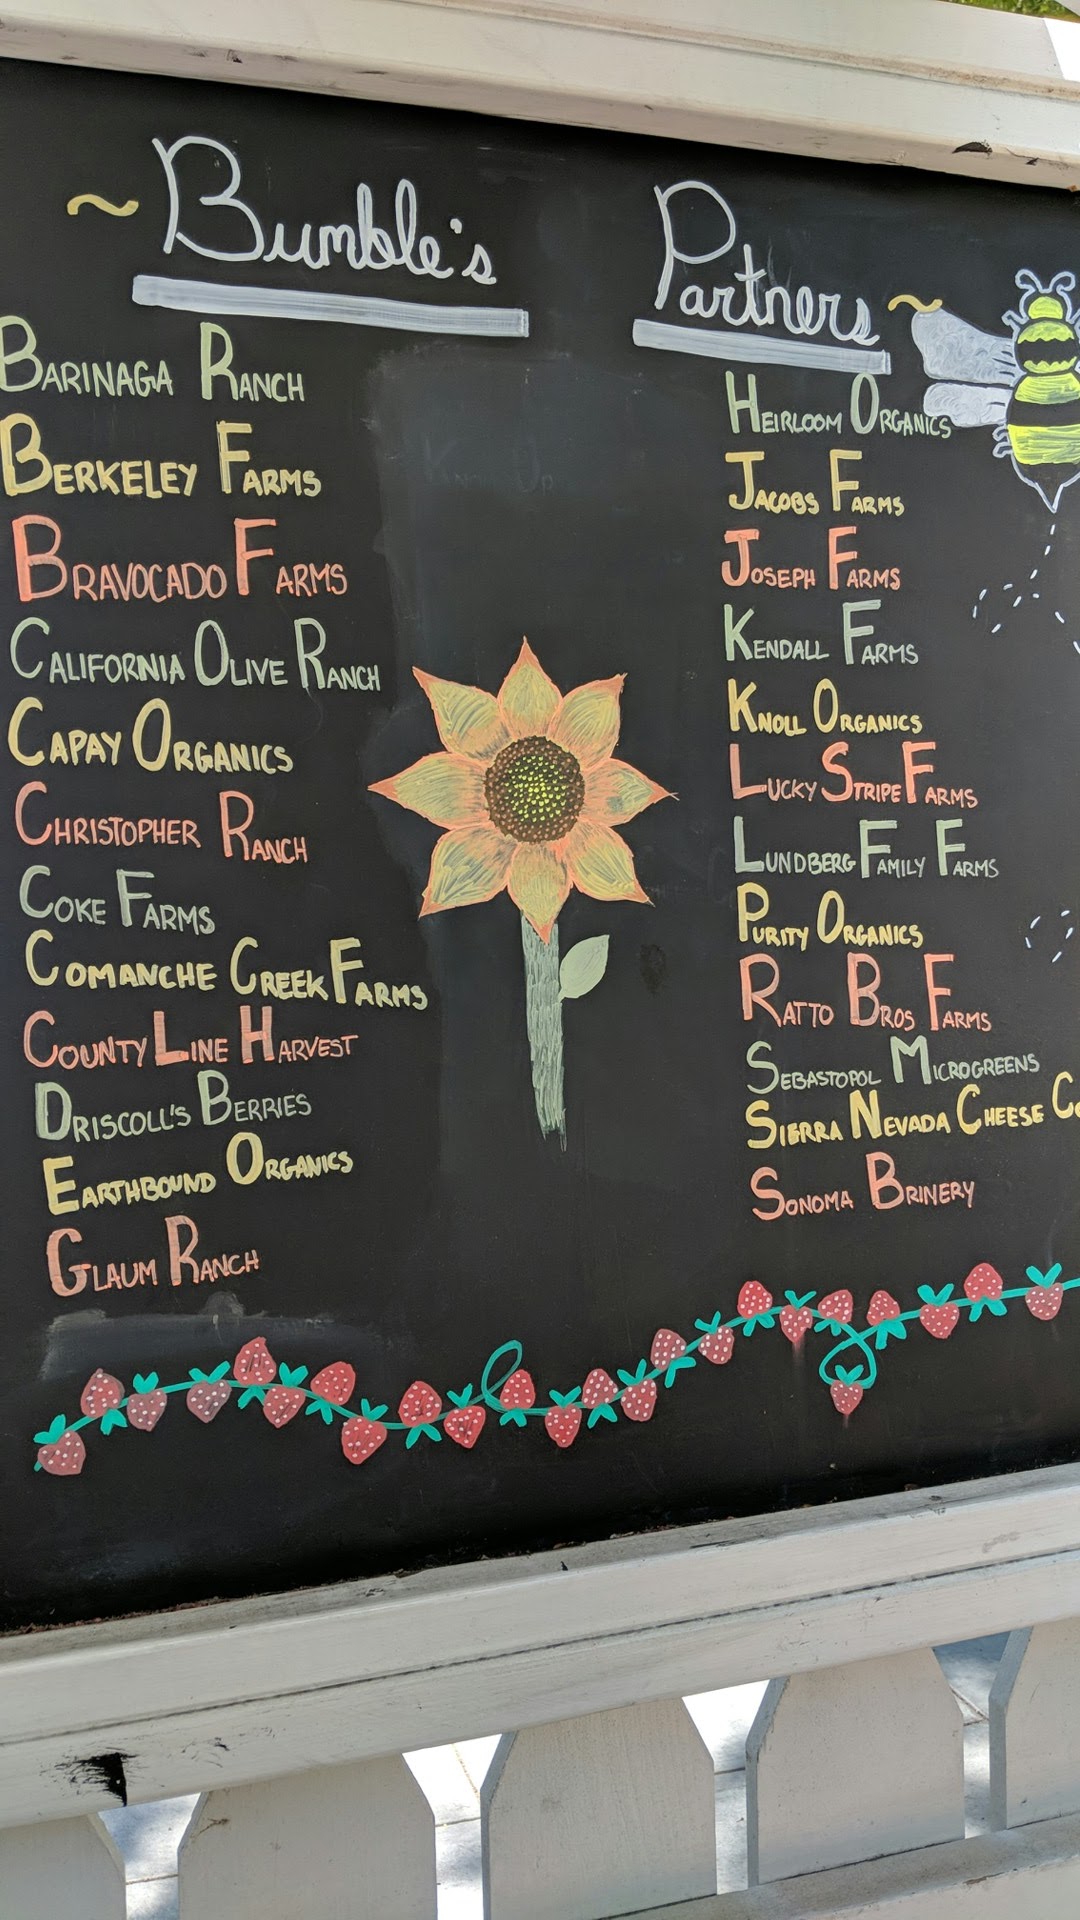 ~Bumble's Partners~
Barinaga Ranch
Berkeley Farms
Bravocado Farms
California Olive Ranch
Capay Organics
Christopher Ranch
Coke Farms
Comanche Creek Farms
County Line Harvest
Driscoll's Berries
Earthbound Organics
Glaum Ranch
Heirloom Organics
Jacobs Farms
Joseph Farms
Kendall Farms
Knoll Organics
Lucky Stripe Farms
Lundberg Family Farms
Purity Organics
Ratto Bros Farms
Sebastopol Microgreens
Sierra Nevada Cheese Co
Sonoma Brinery